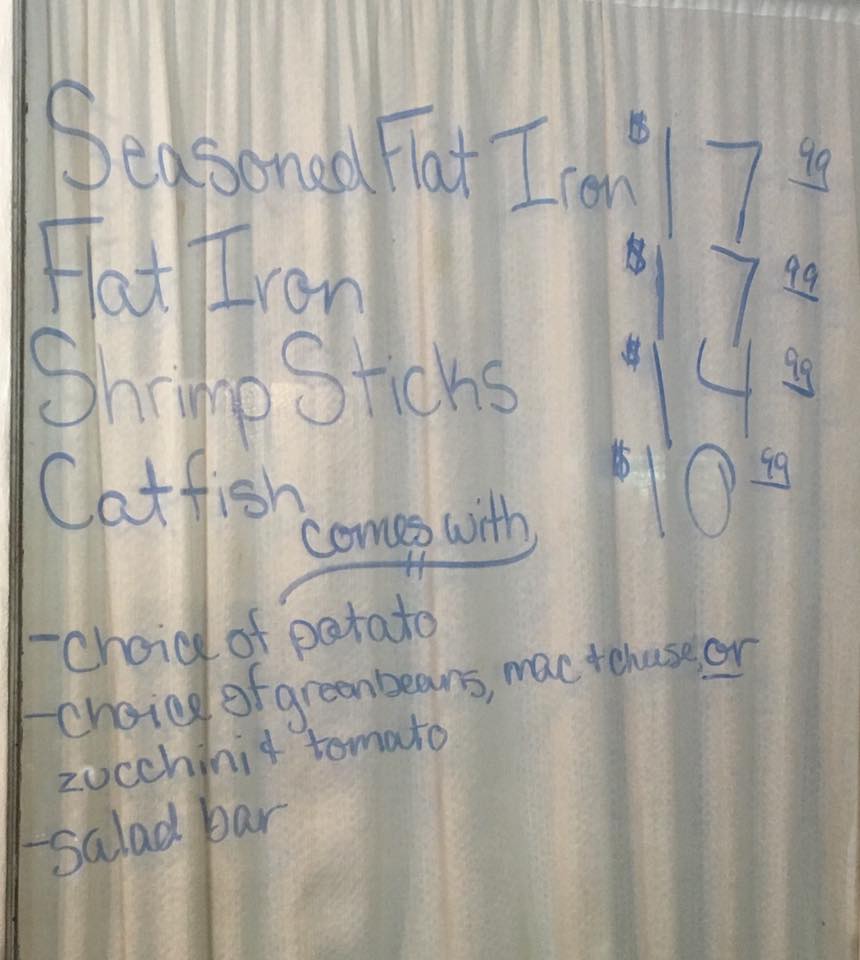 Seasoned Flat Iron $17 99
Flat Iron $17 99
Shrimp Sticks $14 99
Catfish $10 99
comes with
-choice of potato
-choice of greenbeans, mac + cheese, or
zucchini & tomato
-salad bar